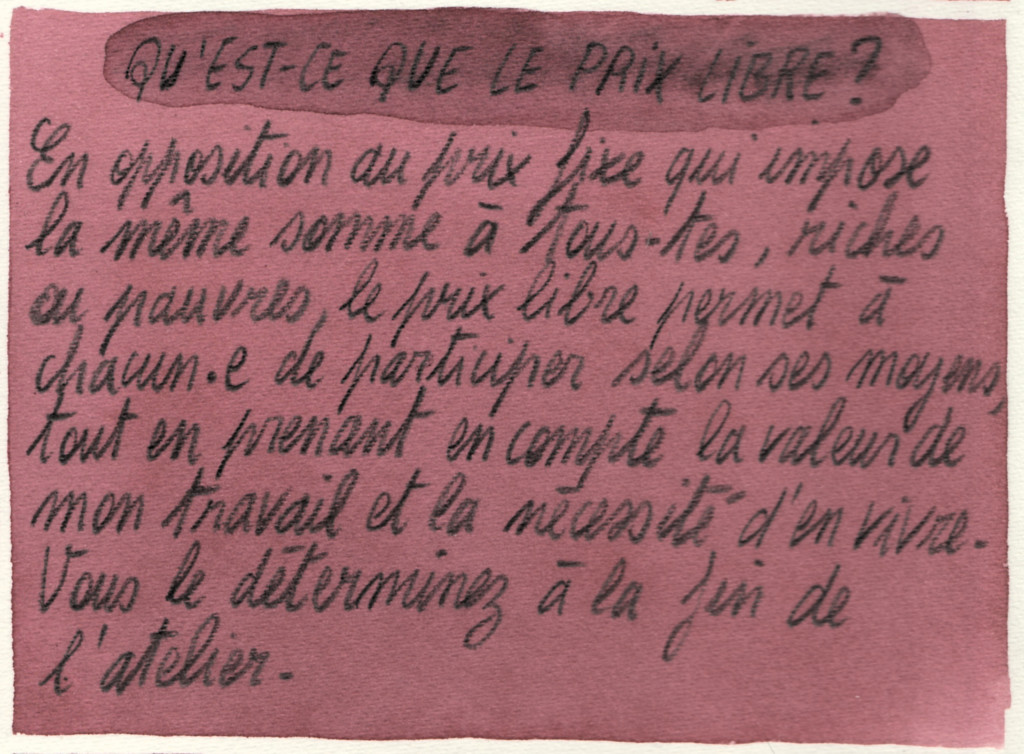 QU'EST-CE QUE LE PRIX LIBRE?
En opposition au prix fixe qui impose
la même somme à tous-tes, riches
ou pauvres, le prix libre permet à
chacun.e de participer selon ses moyens,
tout en prenant en compte la valeur de
mon travail et la nécessité d'en vivre.
Vous le déterminez à la fin de
l'atelier.